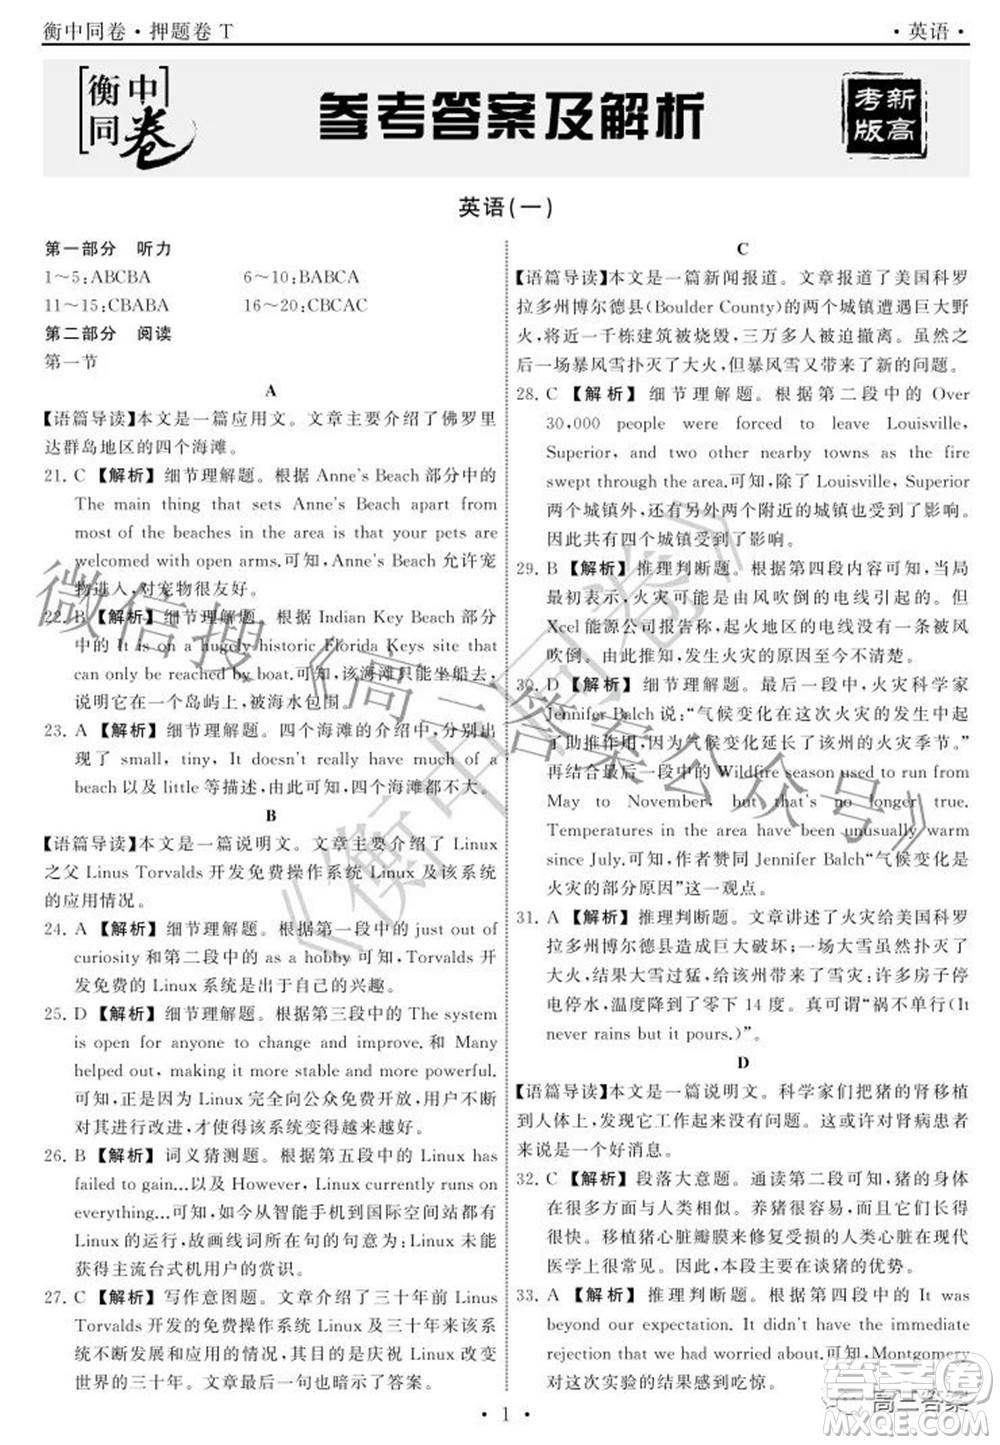 衡中同卷·押题卷 T
·英语·
衡中
同卷
参考答案及解析
新高
考版
英语(一)
第一部分　听力
1～5:ABCBA　6～10:BABCA
11～15:CBABA　16～20:CBCAC
第二部分　阅读
第一节
A
【语篇导读】本文是一篇应用文。文章主要介绍了佛罗里
达群岛地区的四个海滩。
21. C 【解析】 细节理解题。根据 Anne's Beach 部分中的
The main thing that sets Anne's Beach apart from
most of the beaches in the area is that your pets are
welcomed with open arms.可知，Anne's Beach 允许宠
物进入，对宠物很友好。
22. B 【解析】 细节理解题。根据 Indian Key Beach 部分
中的 It is a tiny historic Florida Keys site that
can only be reached by boat.可知，该海滩只能坐船去，
说明它在一个岛屿上，被海水包围。
23. A 【解析】 细节理解题。四个海滩的介绍中，分别出
现了 small, tiny, It doesn't really have much
beach 以及 little 等描述，可知，四个海滩都不大。
B
【语篇导读】本文是一篇说明文。文章主要介绍了 Linux
之父 Linus Torvalds 开发免费操作系统 Linux 及该系统
的应用情况。
24. A 【解析】 细节理解题。根据第一段中的 just out of
curiosity 和第二段中的 as a hobby 可知，Torvalds 开
发免费的 Linux 系统是出于自己的兴趣。
25. D 【解析】 细节理解题。根据第三段中的 The system
is open for anyone to change and improve.和 Many
helped out, making it more stable and more powerful.
可知，Linux 完全向公众免费开放，用户可以对该软
件进行改进，使得该系统变得越来越好。
26. B 【解析】 词义猜测题。根据第五段中的 Linux has
failed to gain...以及 However, Linux currently runs on
everything...可知，如今从智能手机到国际空间站都有
Linux 的运行，故画线词所在的句的句意为：Linux 未能
获得主流台式机用户的赏识。
27. C 【解析】 写作意图题。文章介绍了三十年前 Linus
Torvalds 开发的免费操作系统 Linux 及三十年来该系
统不断发展和应用的情况，其目的是庆祝 Linux 改变
世界的三十年。文章最后一句也暗示了答案。
C
【语篇导读】本文是一篇新闻报道。文章报道了美国科罗
拉多州博尔德县(Boulder County)的两个城镇遭遇巨大野
火，将近一千栋建筑被烧毁，三万多人被迫撤离。虽然之
后一场暴风雪扑灭了大火，但暴风雪又带来了新的问题。
28. C 【解析】 细节理解题。根据第二段中的 Over
30,000 people were forced to leave Louisville,
Superior and two other nearby towns as the fire
swept through the area.可知，除了 Louisville, Superior
两个城镇外，还有另外两个附近的城镇受到了影响。
因此共有四个城镇受到了影响。
29. B 【解析】 推理判断题。根据第四段内容可知，当局
最初表示，火灾可能是由风吹倒的电线引发的。但
Xcel 能源公司报告称，起火地区的电线没有一个被风
吹倒。由此可知，发生火灾的原因至今不清楚。
30. D 【解析】 细节理解题。最后一段中，火灾科学家
Jennifer Balch 说：“气候变化在这次火灾的发生中起
了助推作用，因为气候变化延长了该州的火灾季节。”
再结合最后一段中的 Wildfire season used to run from
May to November, but that's no longer true.
Temperatures in the area have been unusually warm
since July.可知，作者赞同 Jennifer Balch“气候变化是
火灾的部分原因”这一观点。
31. A 【解析】 推理判断题。文章讲述了火灾给美国科罗
拉多州博尔德县造成巨大破坏；一场大雪虽然扑灭了
大火，结果大雪过猛，给该州带来了雪灾；许多房子停
电停水，温度降到了零下 14 度。真可谓“祸不单行(It
never rains but it pours.)”。
D
【语篇导读】本文是一篇说明文。科学家们把猪的肾移植
到人体上，发现它工作起来没有问题。这对肾病患者
来说是一个好消息。
32. C 【解析】 段落大意题。通读第二段可知，猪的身体
在许多方面与人类相似。养猪既容易，成长得也很快。
移植猪心脏瓣膜来更换受损的人类心脏瓣膜在现代
医学上很常见。因此，本段主要在谈猪的优势。
33. A 【解析】 推理判断题。根据第四段中的 It was
beyond our expectation. It didn't have the immediate
rejection that we had worried about.可知，Montgomery
对这次实验的结果感到吃惊。
· 1 ·
微信搜《高三答案公众号》
《衡中同卷》
高三答案
答案圈
MXQE.COM